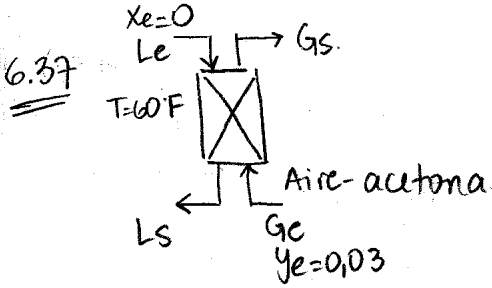 Xe=0
Le
Gs.
6.37
T=60°F
Aire-acetona
Ls
Ge
Ye=0,03